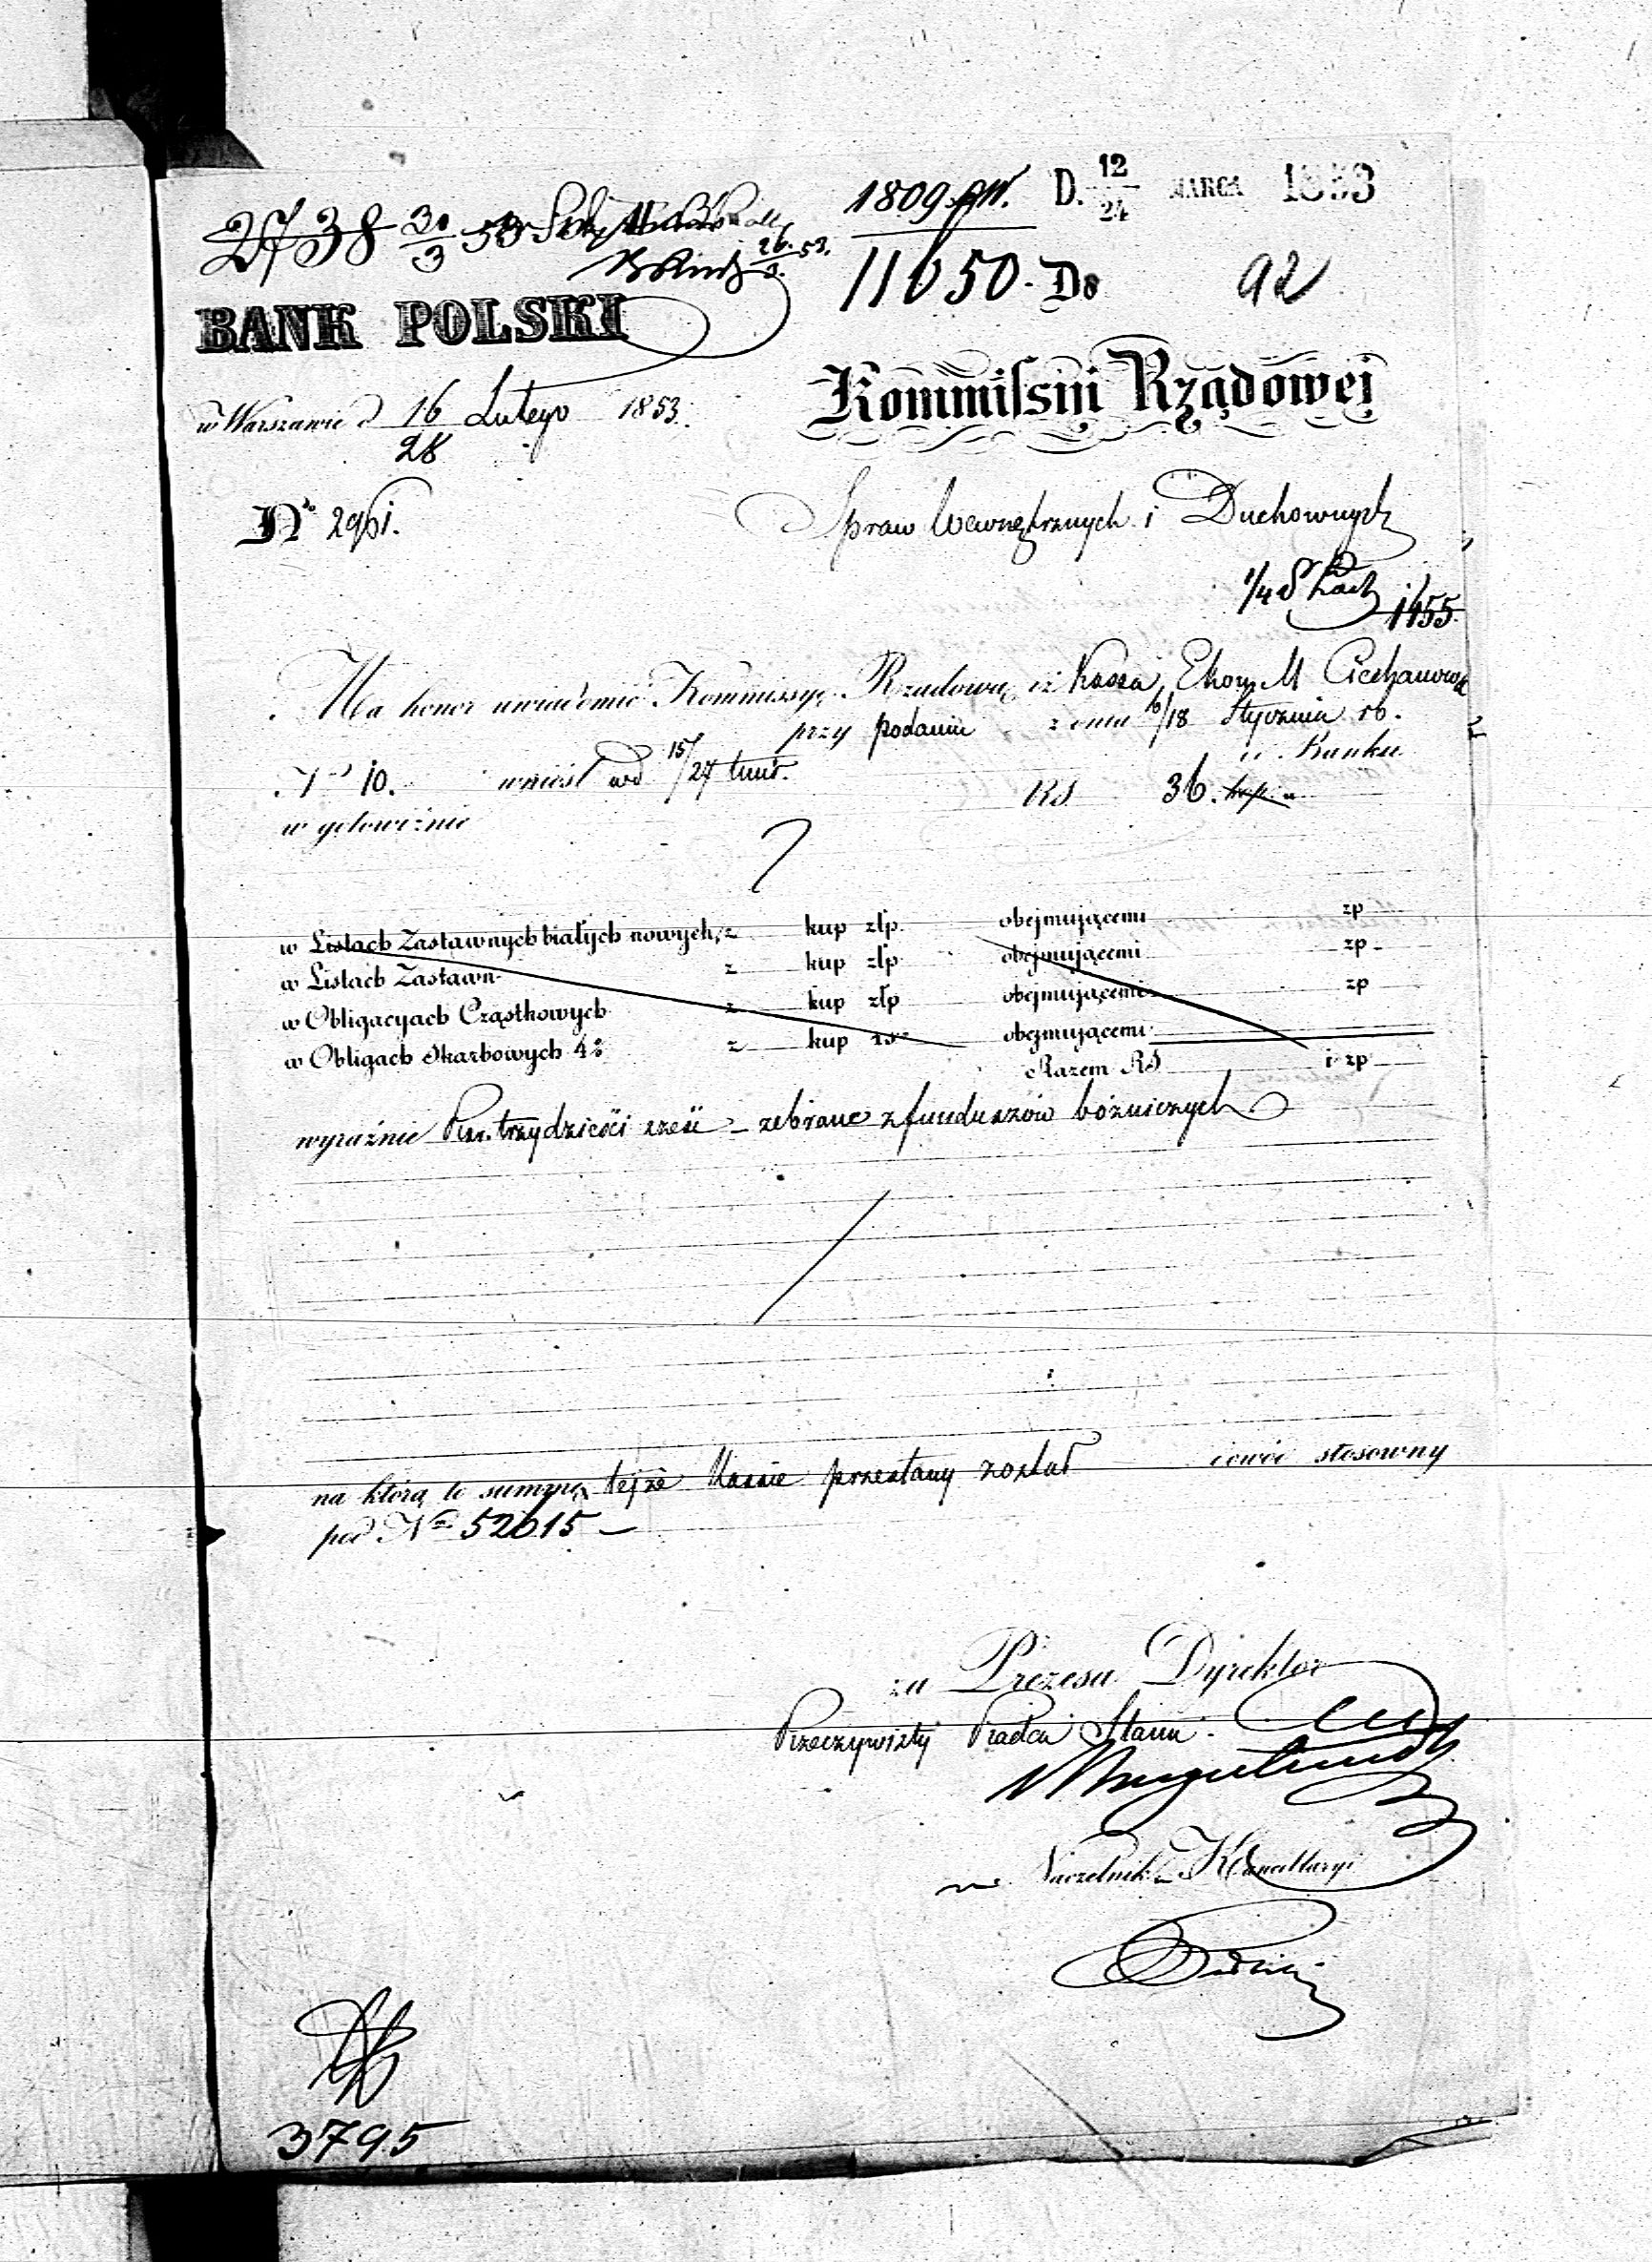 1809 D. 12/24 MARCA 1853
2738 30/3 53
26/3 53.
11650. Do 92
BANK POLSKI
Kommissii Rządowej
w Warszawie d 16/28 Lutego 1853.
Spraw Wewnętrznych i Duchownych
No 2961.
1/4 1455.
Ma honor uwiadomić Kommissyę Rządową iż Kassa Ekon. M Ciechanowa
przy podaniu z dnia 6/18 Stycznia rb.
No 10. wniósł wd 15/27 tmr. do Banku
w gotowiźnie RS 36. kop. "
w Listach Zastawnych białych nowych, z kup złp. obejmującemi zp
w Listach Zastawn z kup złp obejmującemi zp
w Obligacyach Cząstkowych z kup złp obejmującemi zp
w Obligach Skarbowych 4% z kup rs obejmującemi
Razem RS i zp
wyraźnie Rsr. trzydzieści sześć – zebrane z funduszów bóżniczych
na którą to summę tejże Kassie przesłany został dowód stosowny
pod Nm 52615 –
za Prezesa Dyrektor
Rzeczywisty Radca Stanu
Naczelnik Kancellaryi
3795